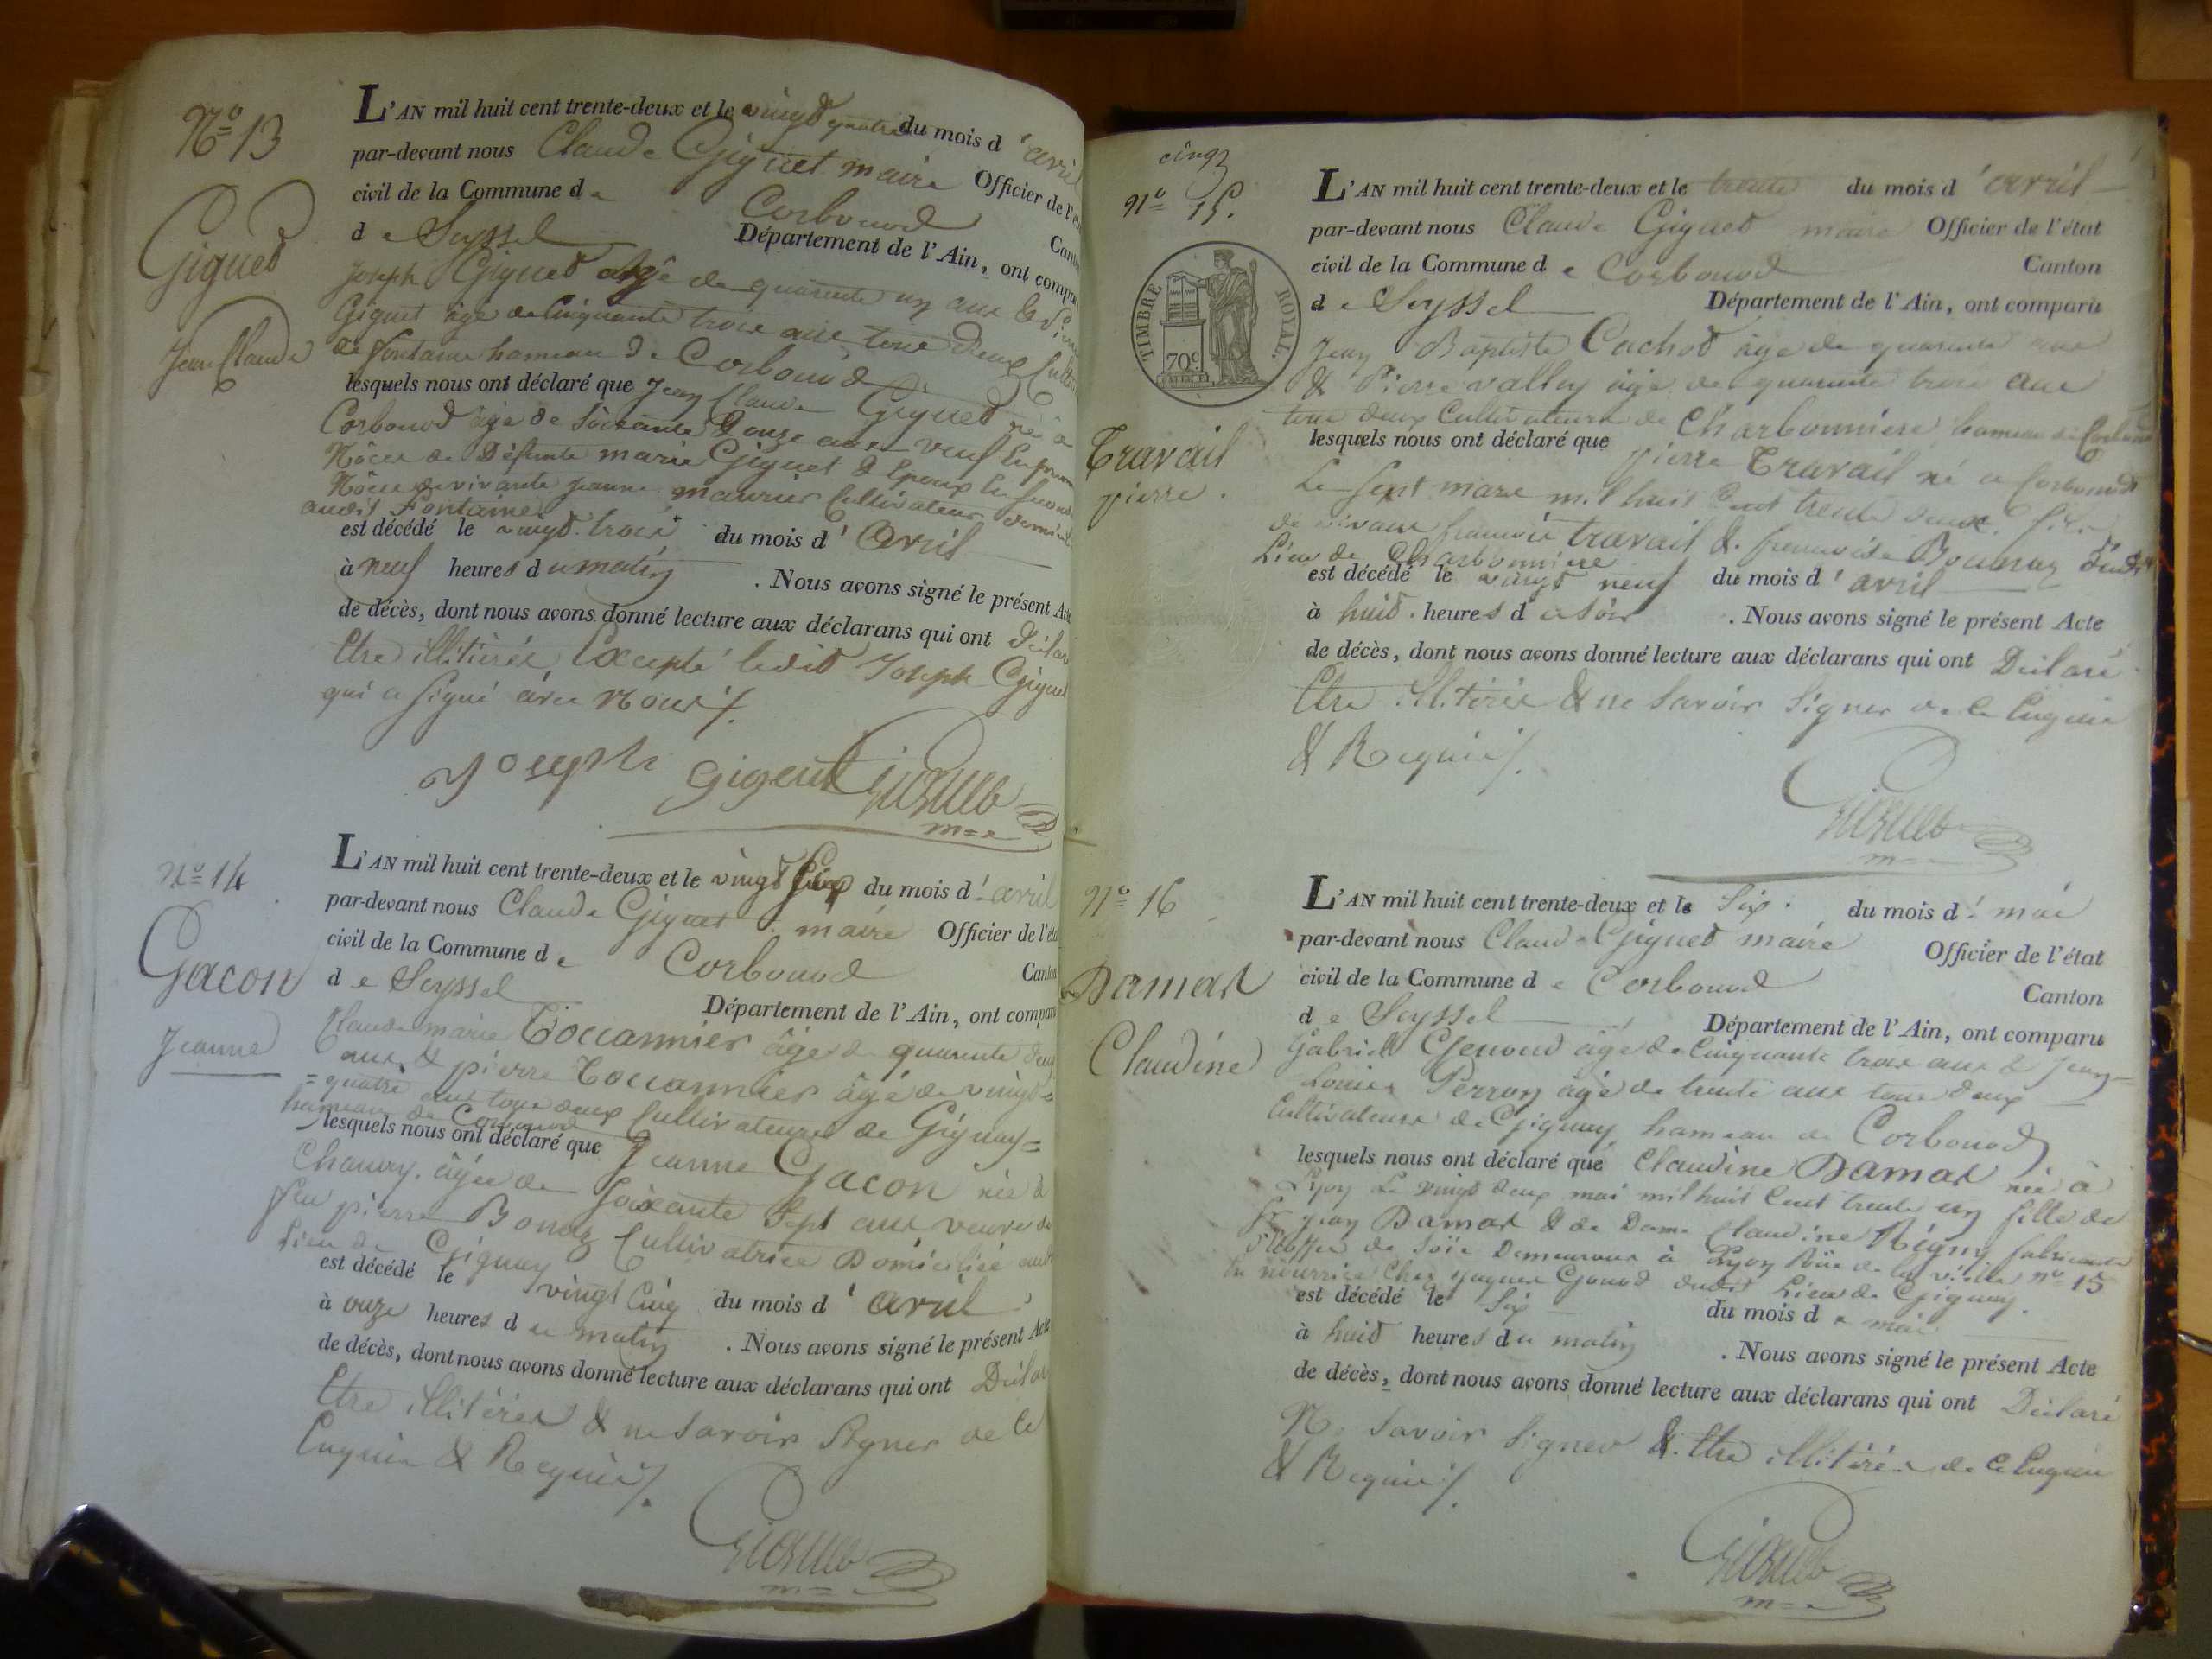 N.º 13
Giguet
Jean Claude
L'AN mil huit cent trente-deux et le vingt quatre du mois d'avril
par-devant nous Claude Giguet maire Officier de l'
civil de la Commune de Corbonod
de Seyssel Département de l'Ain, ont
Joseph Giguet âgé de quarante un ans &
Giguet âgé de Cinquante trois ans tous deux
de fontaine hameau de Corbonod
lesquels nous ont déclaré que Jean Claude Giguet né à
Corbonod âgé de Soixante Douze ans veuf En
Nôces de Défunte marie Giguet & Epoux En
Nôces de vivante jeanne maurier Cultivateur
audit Fontaine
est décédé le vingt trois du mois d'avril
à neuf heures du matin . Nous avons signé le présent Acte
de décès, dont nous avons donné lecture aux déclarans qui ont
Etre illitérés Excepté ledit Joseph Giguet
qui a signé avec Nous
joseph gigeut Giguet
m=e
N.º 14
Gacon
Jeanne
L'AN mil huit cent trente-deux et le vingt Six du mois d'avril
par-devant nous Claude Giguet maire Officier de l'
civil de la Commune de Corbonod Canton
de Seyssel Département de l'Ain, ont comparu
Claude marie Toccannier âgé de quarante deux
ans & pierre Toccannier âgé de vingt=
=quatre ans tous deux Cultivateurs de Gignay=
hameau de Corbonod
lesquels nous ont déclaré que Jeanne Gacon née à
Chanay. âgée de Soixante Sept ans veuve de
feu pierre Bonaz Cultivatrice Domiciliée audit
Lieu de Gignay
est décédé le vingt Cinq du mois d'avril
à onze heures du matin . Nous avons signé le présent Acte
de décès, dont nous avons donné lecture aux déclarans qui ont
Etre illitérés & ne Savoir Signer de Ce
Enquis & Requis
Giguet
m=e
cinq
N.º 15.
TIMBRE ROYAL.
70c
Travail
pierre.
L'AN mil huit cent trente-deux et le trente du mois d'avril
par-devant nous Claude Giguet maire Officier de l'état
civil de la Commune de Corbonod Canton
de Seyssel Département de l'Ain, ont comparu
Jean Baptiste Cachot âgé de quarante ans
& Pierre vallin âgé de quarante trois ans
tous deux Cultivateurs de Charbonniere hameau de Corbonod
lesquels nous ont déclaré que pierre Travail né a Corbonod
Le Sept mars mil huit Cent trente deux. fils
de vivans francois travail & francoise dudit
Lieu de Charbonniere
est décédé le vingt neuf du mois d'avril
à huit heures du soir . Nous avons signé le présent Acte
de décès, dont nous avons donné lecture aux déclarans qui ont Déclaré
Etre illitérés & ne Savoir Signer de Ce Enquis
& Requis
Giguet
m=e
N.º 16
Damas
Claudine
L'AN mil huit cent trente-deux et le Six du mois de mai
par-devant nous Claude Giguet maire Officier de l'état
civil de la Commune de Corbonod Canton
de Seyssel Département de l'Ain, ont comparu
Gabriel Genoud âgé de Cinquante trois ans & Jean=
Louis Perron âgé de trente ans tous deux
Cultivateurs de Gignay hameau de Corbonod
lesquels nous ont déclaré que Claudine Damas née à
Lyon Le vingt deux mai mil huit Cent trente un fille de
Sr. jean Damas & de Dame Claudine Régny fabricants
d'étoffes de Soie Demeurans à Lyon Rüe de la vieille n.º 15
En nourrice Chez jaques Genoud dudit Lieu de Gignay.
est décédé le Six du mois de mai
à huit heures du matin . Nous avons signé le présent Acte
de décès, dont nous avons donné lecture aux déclarans qui ont Déclaré
Ne Savoir Signer & Etre illitérés de Ce Enquis
& Requis
Giguet
m=e